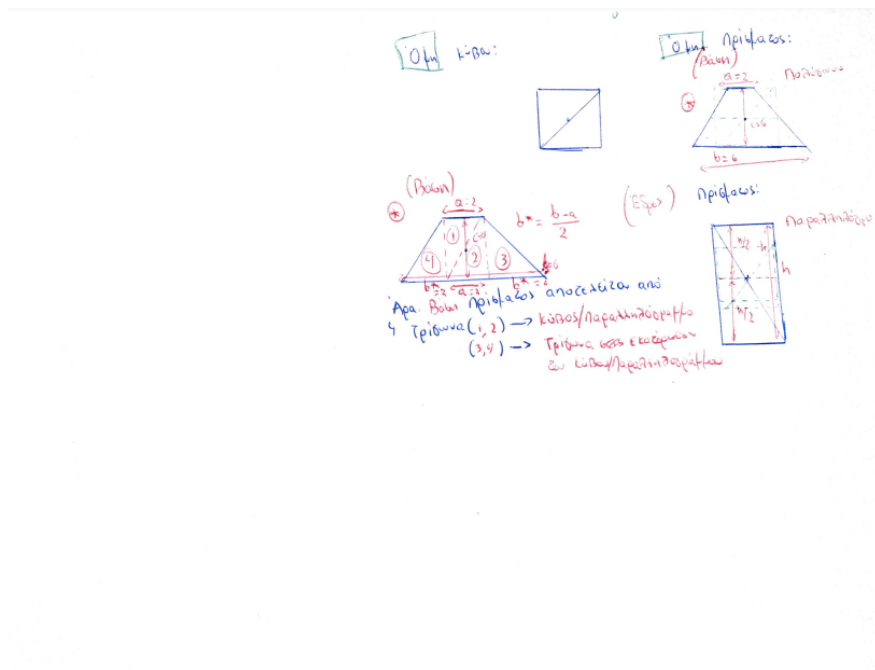 Όψη κύβου:
Όψη Πρίσματος:
(Βάση)
a=2
Πολύγωνο
c=6
b=6
(Βάση)
a=2
b* = b-a
2
1
2
3
4
b*=2
a=2
b*=2
(Έδρες) Πρίσματος:
Παραλληλόγραμμο
h/2
h
h/2
Άρα. Βάση Πρίσματος αποτελείται από
4 Τρίγωνα (1,2) → Κύβος/Παραλληλόγραμμο
(3,4) → Τρίγωνα εκατέρωθεν
του κύβου/Παραλληλογράμμου